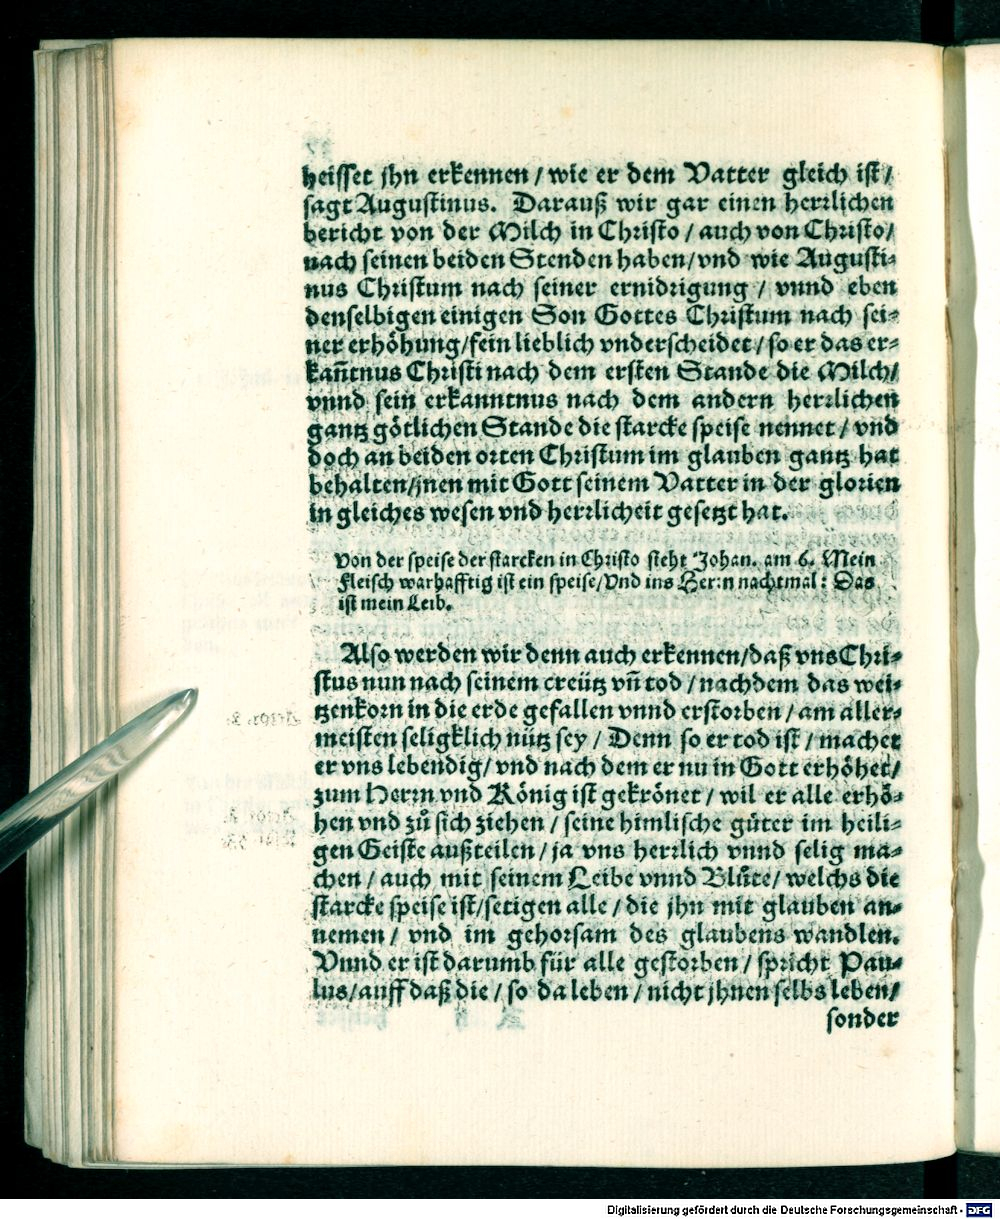 heisset jhn erkennen / wie er dem Vatter gleich ist /
sagt Augustinus. Darauß wir gar einen herrlichen
bericht von der Milch in Christo / auch von Christo /
nach seinen beiden Stenden haben / vnd wie Augusti-
nus Christum nach seiner ernidrigung / vnnd eben
denselbigen einigen Son Gottes Christum nach sei-
ner erhöhung / fein lieblich vnderscheidet / so er das er-
kañtnus Christi nach dem ersten Stande die Milch /
vnnd sein erkanntnus nach dem andern herrlichen
gantz götlichen Stande die starcke speise nennet / vnd
doch an beiden orten Christum im glauben gantz hat
behalten / jnen mit Gott seinem Vatter in der glorien
in gleiches wesen vnd herrlicheit gesetzt hat.
Von der speise der starcken in Christo steht Johan. am 6. Mein
Fleisch warhafftig ist ein speise / Vnd ins Herrn nachtmal: Das
ist mein Leib.
Also werden wir denn auch erkennen / daß vns Chri-
stus nun nach seinem creütz vñ tod / nachdem das wei-
tzenkorn in die erde gefallen vnnd erstorben / am aller-
meisten seligklich nütz sey / Denn so er tod ist / machet
er vns lebendig / vnd nach dem er nu in Gott erhöhet /
zum Herrn vnd König ist gekrönet / wil er alle erhö-
hen vnd zů sich ziehen / seine himlische güter im heili-
gen Geiste außteilen / ja vns herrlich vnnd selig ma-
chen / auch mit seinem Leibe vnnd Blůte / welchs die
starcke speise ist / setigen alle / die jhn mit glauben an-
nemen / vnd im gehorsam des glaubens wandlen.
Vnnd er ist darumb für alle gestorben / spricht Pau-
lus / auff daß die / so da leben / nicht jhnen selbs leben /
sonder
Digitalisierung gefördert durch die Deutsche Forschungsgemeinschaft - DFG